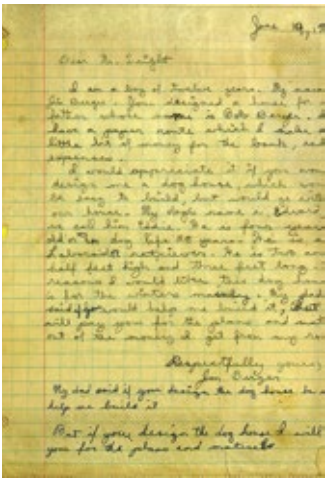 June 19, 19
Dear Mr. Wright
I am a boy of twelve years. My name
Jim Berger. You designed a house for
father whose name is Bob Berger.
have a paper route which I make a
little bit of money for the bank, and
expenses.
I would appreciate it if you would
design me a dog house, which would
be easy to build, but would go with
our house. My dogs name is Edward,
we call him Eddie. He is four years
old or in dog life 28 years. He is a
Labrador retriever. He is two and
half feet high and three feet long.
reasons I would like this dog house
is for the winters mainly. My dad
said if you would help me build it, But
will pay you for the plans and mat
out of the money I get from my rou
Respectfully yours,
Jim Berger
My dad said if you design the dog house he w
help me build it
But if you design the dog house I will
you for the plans and materials